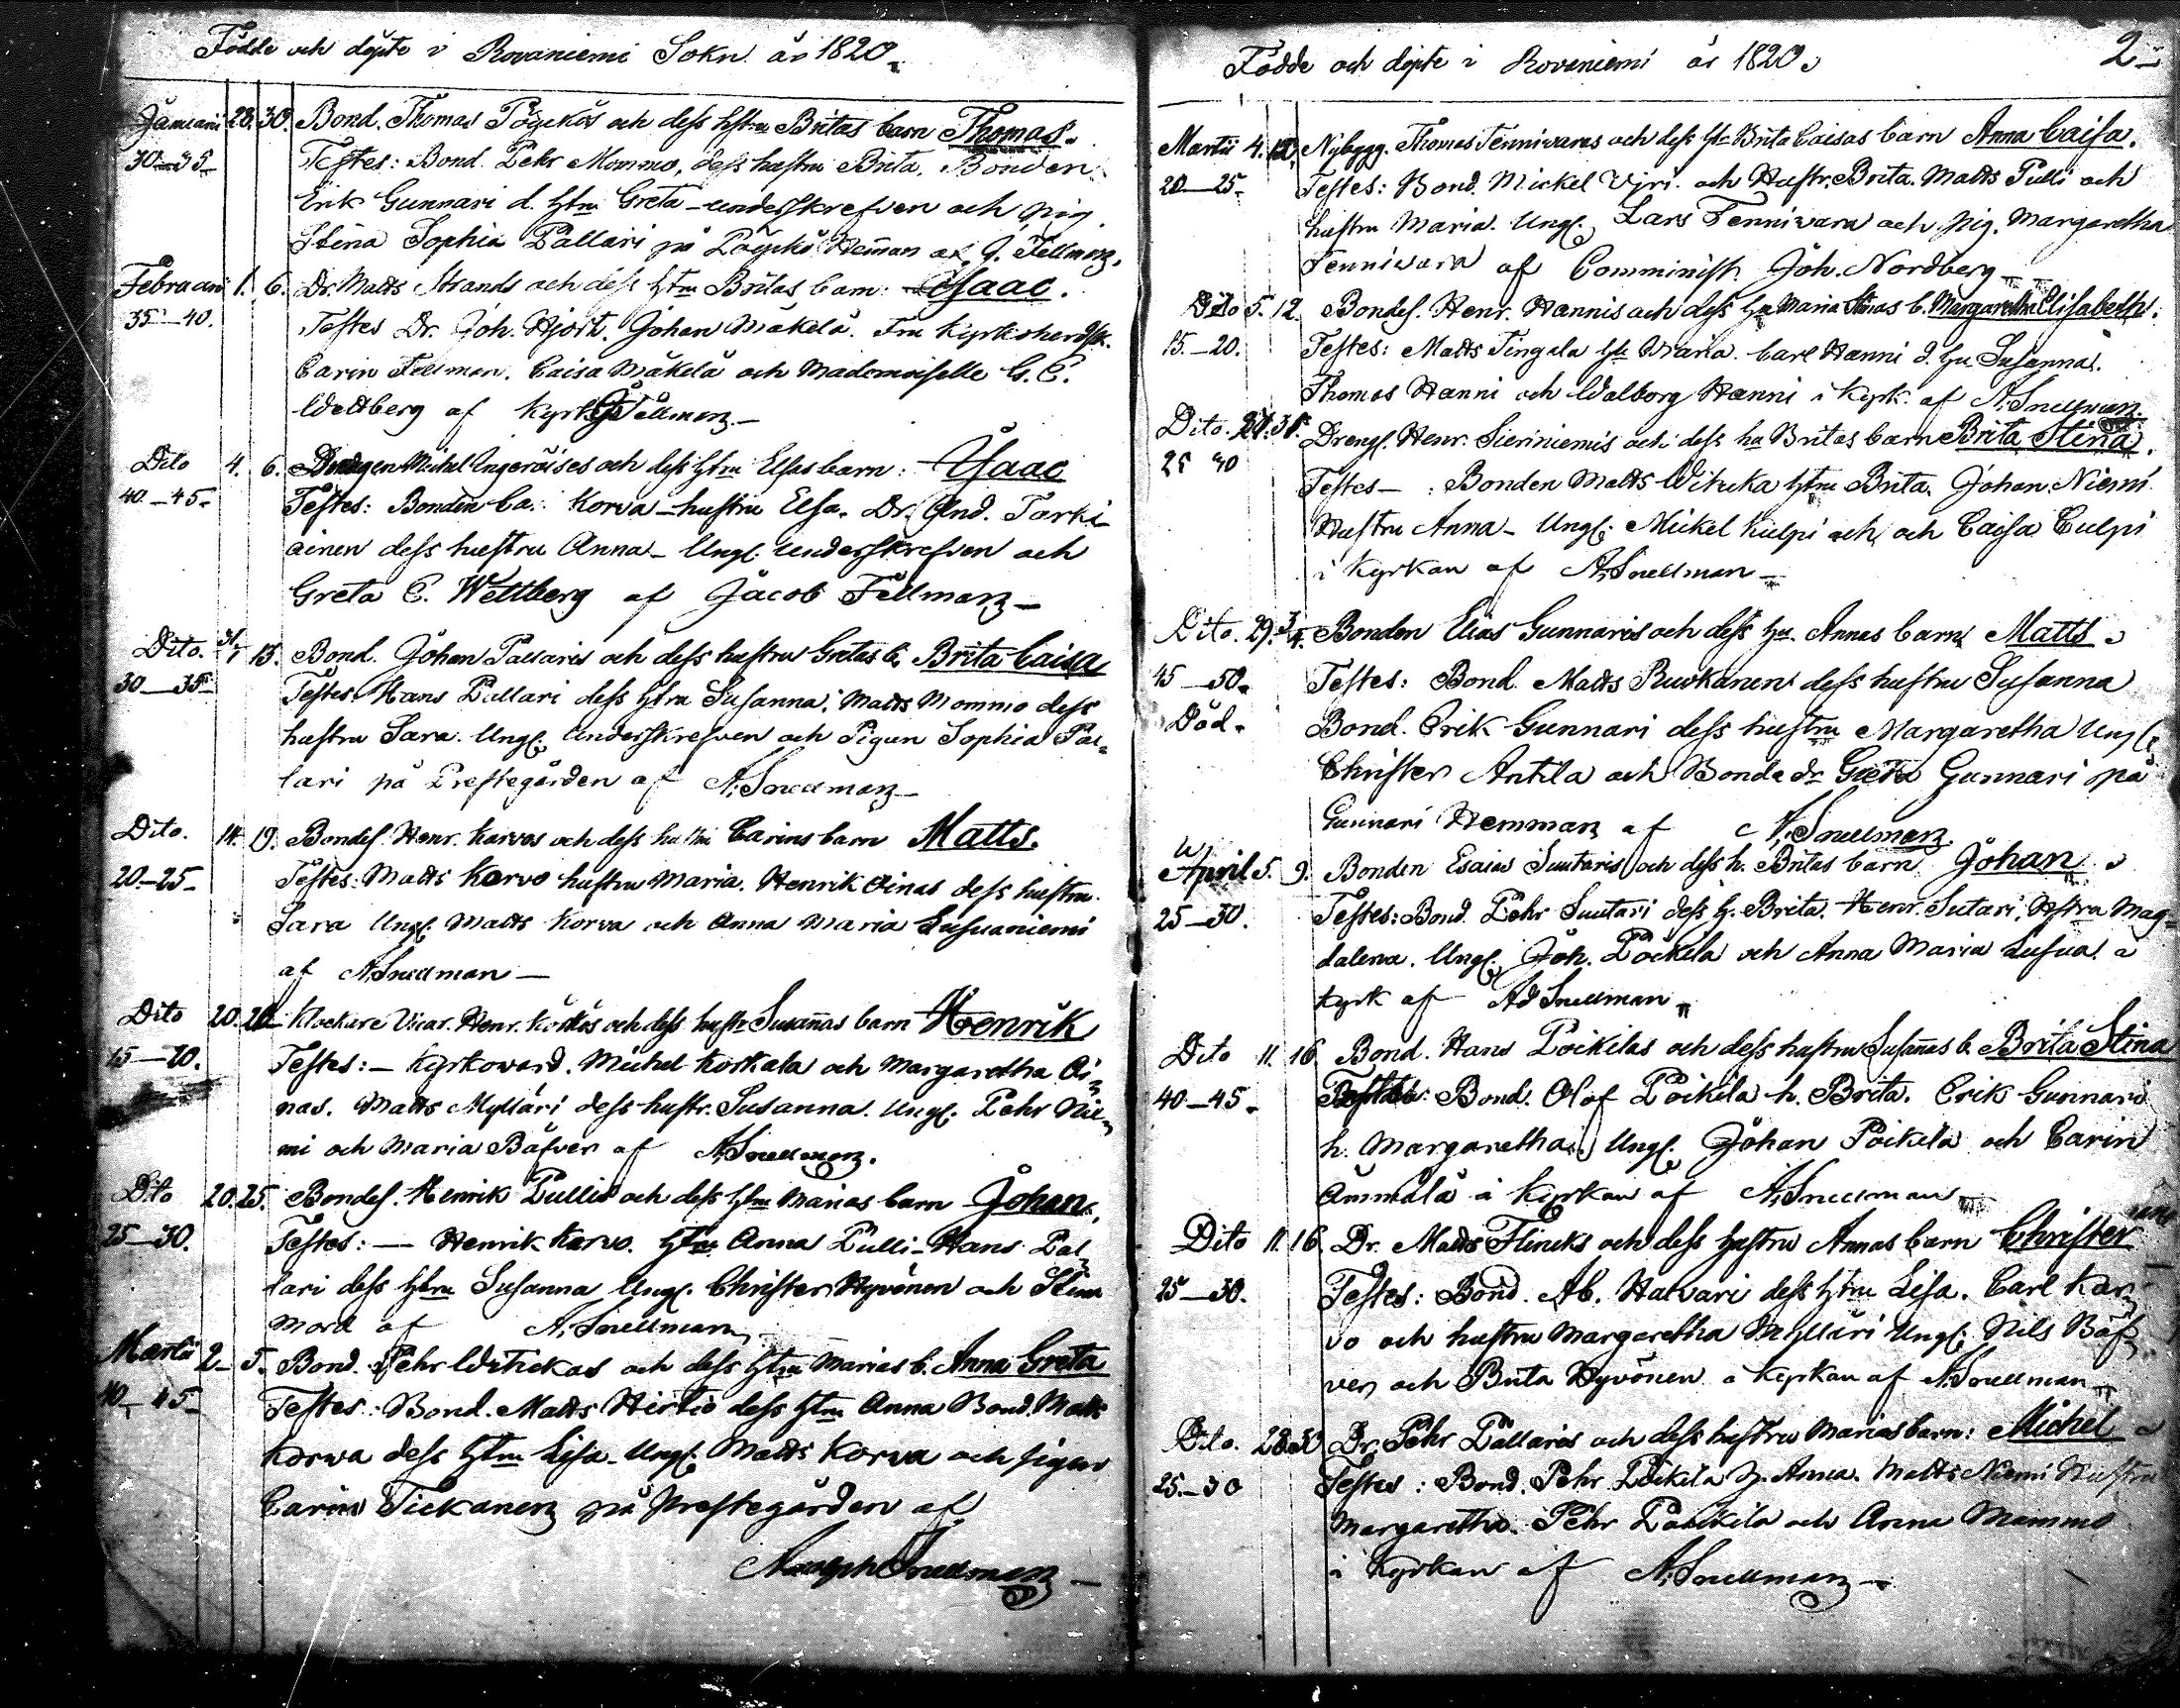 Födde och döpte i Rovaniemi Sokn år 1820.
Januarii 28. 30. Bond. Thomas Pöyckös och dess hstru Britas barn Thomas.
30-35- Testes: Bond. Pehr Mommo, dess hustru Brita. Bonden
Erik Gunnari d. hstru Greta - underskrefven och pig.
Stina Sophia Pallari på Pöyckö Heman af J. Fellman.
Februarii 1. 6. Dr. Matts Strands och dess hstru Britas barn: Isaac.
35-40. Testes Dr. Joh. Hjort. Johan Mäkelä. Fru Kyrkoherdsk.
Carin Fellman. Caisa Mäkelä och Mademoiselle G. C.
Wettberg af Kyrkh. Fellman-
Dito 4. 6. Drengen Michel Ingeröises och dess hstru Elsas barn: Isaac
40-45- Testes: Bonden Ca. Korva - hustru Elsa. Dr. And. Tarki-
ainen dess hustru Anna - Ungl. underskrefven och
Greta C. Wettberg af Jacob Fellman-
Dito. 31/1 13. Bond. Johan Pallaris och dess hustru Gretas b. Brita Caisa
30-35- Testes. Hans Pallari dess hstru Susanna. Matts Mommo dess
hustru Sara. Ungl. underskrefven och Pigan Sophia Pal-
lari på Prestegården af A. Snellman-
Dito. 14. 19. Bondes. Henr. Karvos och dess hustru Carins barn Matts.
20-25- Testes: Matts Karvo hustru Maria. Henrik Ainas dess hustru
Sara Ungl. Matts Korva och Anna Maria Lusuaniemi
af A. Snellman-
Dito 20. 20. Klockare Vicar. Henr. Köikös och dess hustr Susañas barn Henrik
15-20. Testes: - Kyrkovärd. Michel Korkala och Margaretha Ai-
nas. Matts Mylläri dess hustr. Susanna. Ungl. Pehr Nie-
mi och Maria Bäfver af A. Snellman.
Dito 20. 25. Bondes. Henrik Pullis och dess hstru Marias barn Johan.
25-30. Testes: - Henrik Karvo. hstru Anna Pulli - Hans Pal-
lari dess hstru Susanna Ungl. Christer Hyvönen och Stina
Mord af A. Snellman
Martii 2- 5. Bond. Pehr Witickas och dess hstru Marias b. Anna Greta
40-45- Testes: Bond. Matts Hirtiö dess hstru Anna Bond. Matts
Korwa dess hstru Lisa - Ungl. Matts Korva och pigan
Carin Tickanen på Prestegården af
Adolph Snellman-
Födde och döpte i Rovaniemi år 1820. 2-
Martii 4. 12. Nybygg. Thomas Tenniwaras och dess hu Brita Caisas barn Anna Caisa.
20-25- Testes: Bond. Mickel Viri och Hustr. Brita. Matts Pulli och
hustru Maria. Ungl. Lars Tenniwara och pig. Margaretha
Tenniwara af Comminist. Joh. Nordberg-
Dito 5. 12. Bondes. Henr. Hannis och dess hu Maria Stinas b. Margaretha Elisabeth.
15-20. Testes: Matts Tingala hu Maria. Carl Hanni d. hu Susanna.
Thomas Hanni och Walborg Hanni i Kyrk. af A. Snellman
Dito. 27. 31. Drengs. Henr. Sieriniemis och dess hu Britas barn Brita Stina.
25 30 Testes - : Bonden Matts Wituka hstru Brita. Johan Niemi
Hustru Anna - Ungl. Mickel Kulpi och och Caisa Culpi
i Kyrkan af A. Snellman-
Dito. 29. 3/4. Bonden Elias Gunnaris och dess hu. Annas barn Matts
45-50. Testes: Bond. Matts Ruokanen dess hustru Susanna
Död. Bond. Erik Gunnari dess hustru Margaretha Ungl.
Christer Antila och Bonde dr Greta Gunnari på
Gunnari Hemman af A. Snellman
April 5. 9. Bonden Esaias Suutaris och dess h. Britas barn Johan
25-30. Testes: Bond. Pehr Suutari dess h. Brita. Henr. Sutari, Hstru Mag-
dalena. Ungl. Joh. Pöckela och Anna Maria Lusua. i
kyrk af Ad Snellman
Dito 11. 16 Bond. Hans Poikilas och dess hustru Susañas b. Brita Stina
40-45. Testes: Bond. Olof Poikela h. Brita. Erik Gunnari
h. Margaretha. Ungl. Johan Poikela och Carin
Ämmälä i Kyrkan af A. Snellman
Dito 11. 16. Dr. Matts Flincks och dess hustru Annas barn Christer
25-30. Testes: Bond. Ab. Havari dess hstru Lisa. Carl Kar-
vo och hustru Margaretha Mylläri Ungl. Nils Bäf-
ver och Brita Hyvönen i Kyrkan af A. Snellman
Dito. 28. 30 Dr. Pehr Pallaris och dess hustru Marias barn: Michel
25-30 Testes: Bond. Pehr Poikela h. Anna. Matts Niemi Hustru
Margaretha. Pehr Poikila och Anna Mommo
i Kyrkan af A. Snellman-